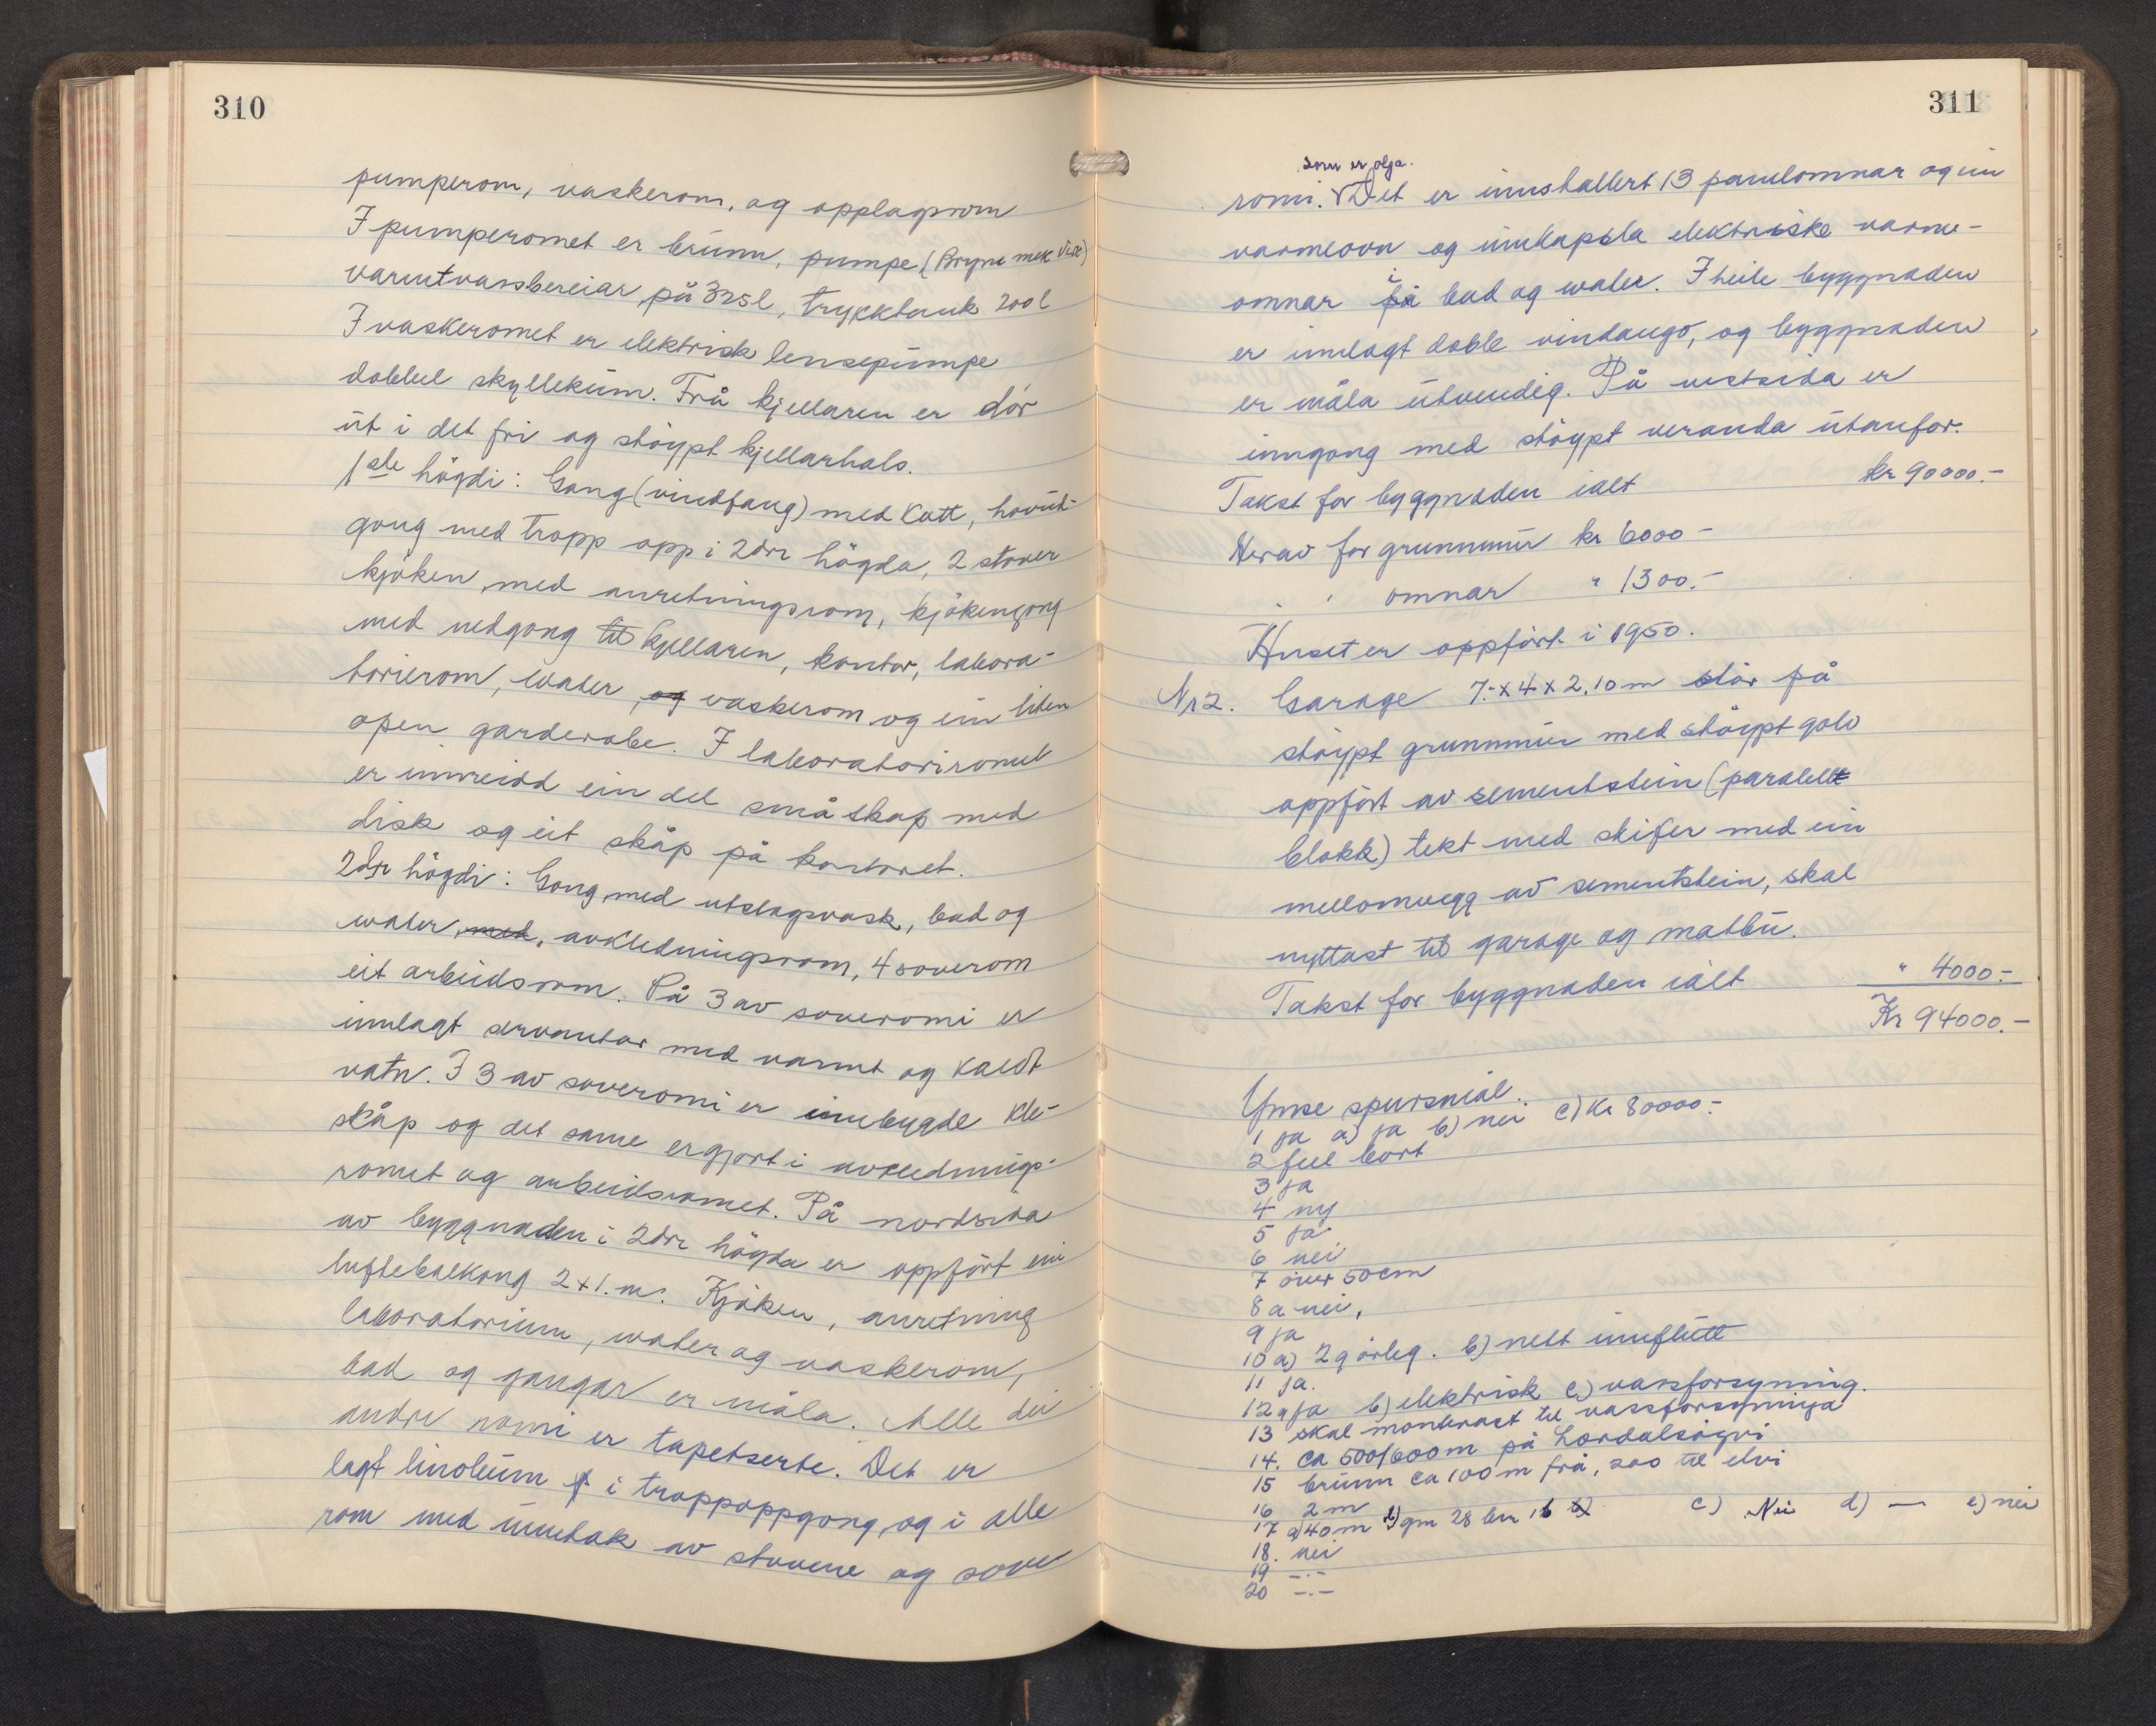 310
pumperom, vaskerom, og opplagsrom
I pumperomet er brunn, pumpe (Bryne mek
varmtvassbereiar på 325 l, trykktank 200 l
I vaskeromet er elektrisk lensepumpe
dobbel skyllekum. Frå kjellaren er dör
ut i det fri og stöypt kjellarhals.
1ste högdi: Gang (vindfang) med Kott, hovud-
gong med tropp opp i 2dre högda, 2 stover
kjöken med anretningsrom, kjökengong
med nedgong til kjellaren, kontor, labora-
torierom, water, og vaskerom og ein liten
open garderobe. I laboratorieromet
er innreidd ein del småskap med
disk og eit skåp på kontoret.
2dre högdi: Gong med utslagsvask, bad og
water, med, avkledningsrom, 4 soverom
eit arbeidsrom. På 3 av soveromi er
innlagt servantar med varmt og kaldt
vatn. I 3 av soveromi er innbygde kle-
skåp og det same er gjort i avklednings-
romet og arbeidsromet. På nordsida
av byggnaden i 2dre högda er oppfört ein
luftebalkong 2 x 1. m. Kjöken, anretning
laboratorium, water og vaskerom,
bad og gangar er måla. Alle dei
andre romi er tapetserte. Det er
lagt linoleum i troppoppgong og i alle
rom med unntak av stovene og sove-
311
som er olja.
romi. Det er innstallert 13 panelomnar og ein
varmeovn og innkapsla elektriske varme-
omnar på i bad og water. I heile byggnaden
er innlagt doble vindaugo, og byggnaden
er måla utvendig. På vestsida er
inngong med stöypt veranda utanfor.
Takst for byggnaden ialt kr 90000.-
Herav for grunnmur kr 6000-
" " omnar " 1300.-
Huset er oppfört i 1950.
Nr 2. Garage 7.- x 4 x 2,10 m stör på
stöypt grunnmur med stöypt golv
oppfört av sementstein (paralell
blokk) tekt med skifer med ein
mellomvegg av sementstein, skal
nyttast til garage og matbu.
Takst for byggnaden ialt " 4000.-
Kr 94000.-
Ymse spursmål.
1 ja a) ja b) nei c) Kr 80000.-
2 fell bort
3 ja
4 ny
5 ja
6 nei
7 över 50 cm
8 a nei,
9 ja
10 a) 2 gårleg. b) nett innflutt
11 ja.
12 a ja b) elektrisk c) vassforsyning.
13 skal monterast til vassforsyninga
14. ca 500/600 m på Lærdalsöyri
15 brunn ca 100 m frå, 200 til elvi
16 2 m
17 a) 40 m b) gm 28 bn 16 c) Nei d) — e) nei
18. nei
19 -.-
20 -.-